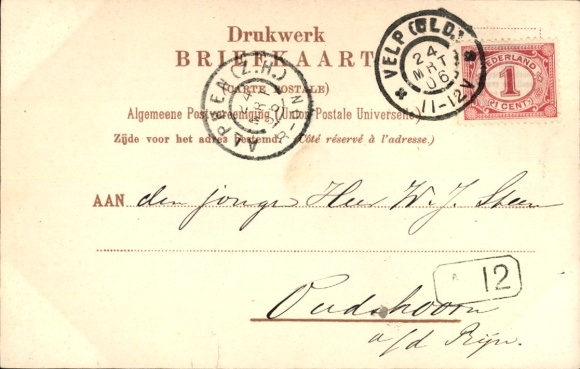 Drukwerk
BRIEFKAART
(CARTE POSTALE)
Algemeene Postvereeniging (Union Postale Universelle)
Zijde voor het adres bestemd. (Côté réservé à l'adresse.)
VELP (GLD.)
24
MRT
06
11-12V
NEDERLAND
1
CENT
(Z.H.)
AAN den jonge Heer W. J. Steen
12
Oudshoorn
a/d Rijn.